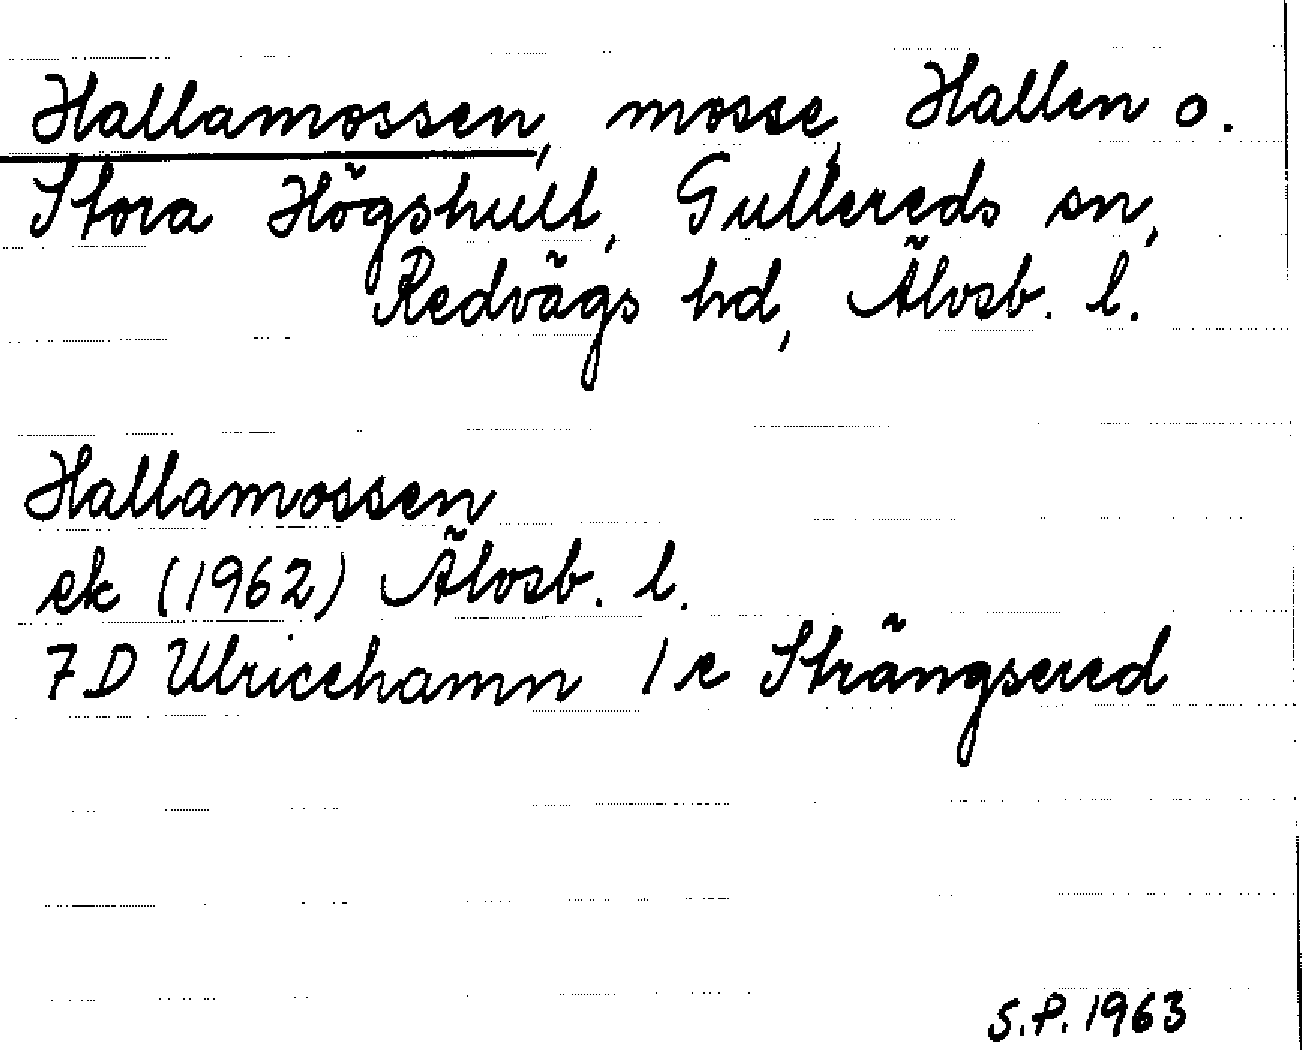 Hallamossen, mosse, Hallen o.
Stora Högshult, Gullereds sn,
Redvägs hd, Älvsb. l.
Hallamossen
ek (1962) Älvsb. l.
7 D Ulricehamn 1 e Strängsered
S.P. 1963